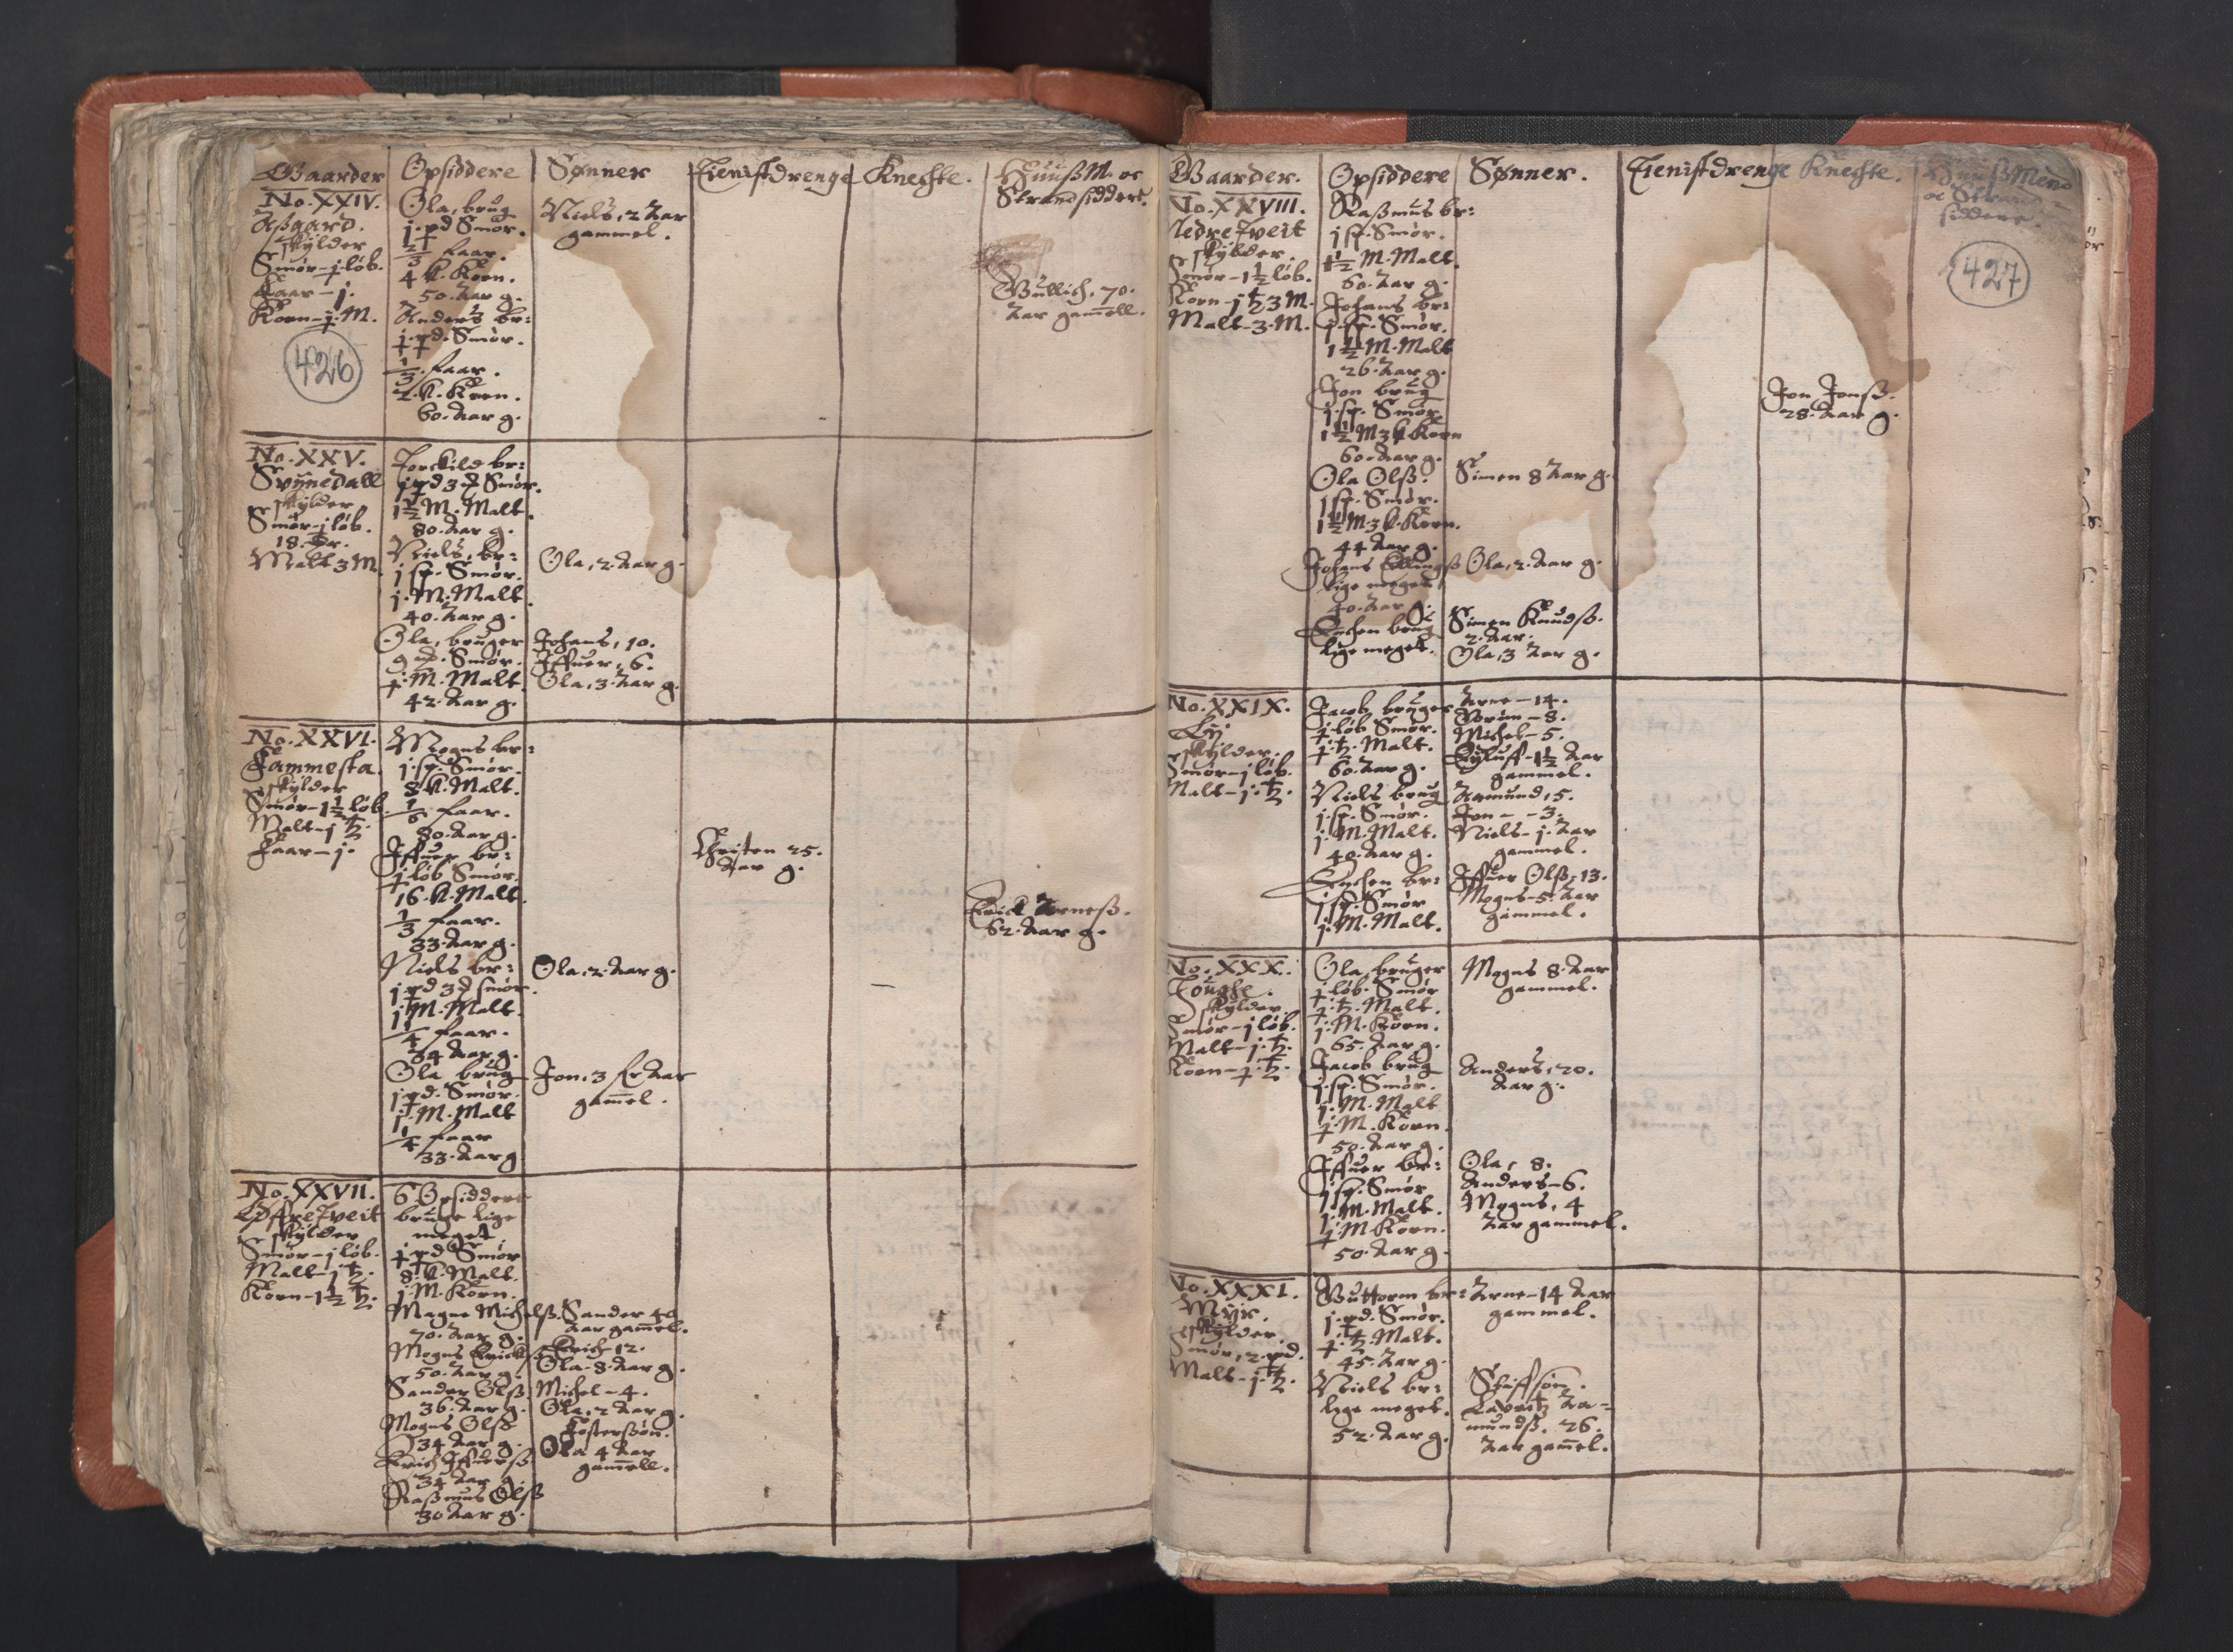 Gaarder
Opsiddere
Sønner
Tienistdrenge
Knechte.
Huuß M. oc
Strandsiddere.
No. XXIV.
Aßgard.
skylder
Smør - j løb.
Faar - j.
Korn - j. M.
426
Ola, brug
j. pd Smør.
2/3 faar.
4 k. Korn.
50. Aar g.
Anders br:
j. pd. Smør.
1/3. faar.
2. k. Korn.
60. Aar g.
Niels, 2 Aar
gammel.
Gullich. 70.
Aar gam̄ell.
No. XXV.
Svynedall
skylder
Smør - j løb.
18.
Malt 3 M.
Torckild br:
j pd 3 Smør.
1½ M. Malt.
80. Aar g.
Niels, br:
j sp. Smør.
j. M. Malt.
40. Aar g.
Ola, bruger
9 Smør.
j. M. Malt.
42. Aar g.
Ola, 2. Aar g.
Johans, 10.
Iffuer, 6.
Ola, 3. Aar g.
No. XXVI.
Fammesta.
skylder
Smør - 1½ løb.
Malt - j
Faar - j.
Mogns br:
j. sp. Smør.
8 k. Malt.
1/6 faar.
80. Aar g.
Iffuer br:
løb Smør.
16. k. Malt.
1/3 faar.
33. Aar g.
Niels br:
j pd 3 smør.
j. M. Malt.
1/4 faar.
34 Aar g.
Ola brug
j pd. Smør.
j. M. Malt
1/4 faar
33. Aar g
Christen 25.
Aar g.
Erick Arneß.
62. Aar g.
Ola, 2. Aar g.
Jon, 3 Aar
gam̄el.
No. XXVII.
Øffretveit
skylder
Smør - j løb.
Malt - j
Korn - 1½
6 Opsiddere
bruge lige
meget
pd Smør
8. k. Malt.
j. M. Korn.
Magne Michelß.
70. Aar g.
Mogns Erickß
50. Aar g.
Sander Olß.
36. Aar g.
Mogns Olß
34 Aar g.
Erich Iffuerß
34 Aar g.
Raßmus Olß
30 Aar g.
Sander 40
Aar gam̄el.
Erich - 12.
Ola - 8. Aar g.
Michel - 4.
Ola, 2 Aar g.
Fostersøn.
Ola 4 Aar
gam̄ell.
Gaarder.
Opsiddere
Sønner.
Tienistdrenge
Knechte.
Huuß Mend
oc Strand
siddere.
427
No. XXVIII.
Nedretveit
skylder.
Smør - 1½ løb.
Korn - j 3 M.
Malt - 3. M.
Raßmus br:
j sp. Smør.
1½ M. Malt.
60. Aar g.
Johans br:
j. sp. Smør.
1½ M. Malt
26. Aar g.
Jon brug
j. sp. Smør
1½ M 3 k. Korn
60. Aar g.
Ola Olß.
j sp. Smør.
1½ M. 3 k. Korn.
44 Aar g.
Johans Ellingß
lige meget
40. Aar g.
Enchen brug
lige meget.
Simen 8 Aar g.
Ola, 2. Aar g.
Simen Knudß.
2. Aar.
Ola, 3 Aar g.
Jon Jonß.
28. Aar g.
No. XXIX.
Ly
skylder.
Smør - j løb.
Malt - j.
Jacob bruger
løb Smør.
Malt.
60. Aar g.
Niels brug
j. sp. Smør.
j. M. Malt.
40. Aar g.
Enchen br:
j sp. Smør
j. M. Malt.
Arne - 14.
Gorim - 8.
Michel - 5.
Eyluff - 1½ Aar
gammel.
Aamund, 5.
Jon - - 3.
Niels - j. Aar
gammel.
Iffuer Olß, 13.
Mogns - 5. Aar
gammel.
No. XXX.
skylder.
Smør - j løb.
Malt - j.
Korn - j.
Ola, bruger
løb. Smør
Malt.
j. M. Korn.
65. Aar g.
Jacob brug
j. sp. Smør.
j. M. Malt
M. Korn.
50. Aar g.
Iffuer br:
j sp. Smør
j. M. Malt.
M Korn.
50. Aar g.
Mogns 8. Aar
gammel.
Anders, 20.
Aar g.
Ola, 8.
Anders - 6.
Mogns, 4
Aar gammel.
No. XXXI.
Myr.
skylder.
Smør, 2. pd.
Malt - j.
Guttorm br:
j. pd. Smør.
Malt.
45. Aar g.
Niels br:
lige meget.
52. Aar g.
Arne - 14 Aar
gammel.
Stiffsøn.
Lavritz Aa-
mundß. 26.
Aar gam̄el.